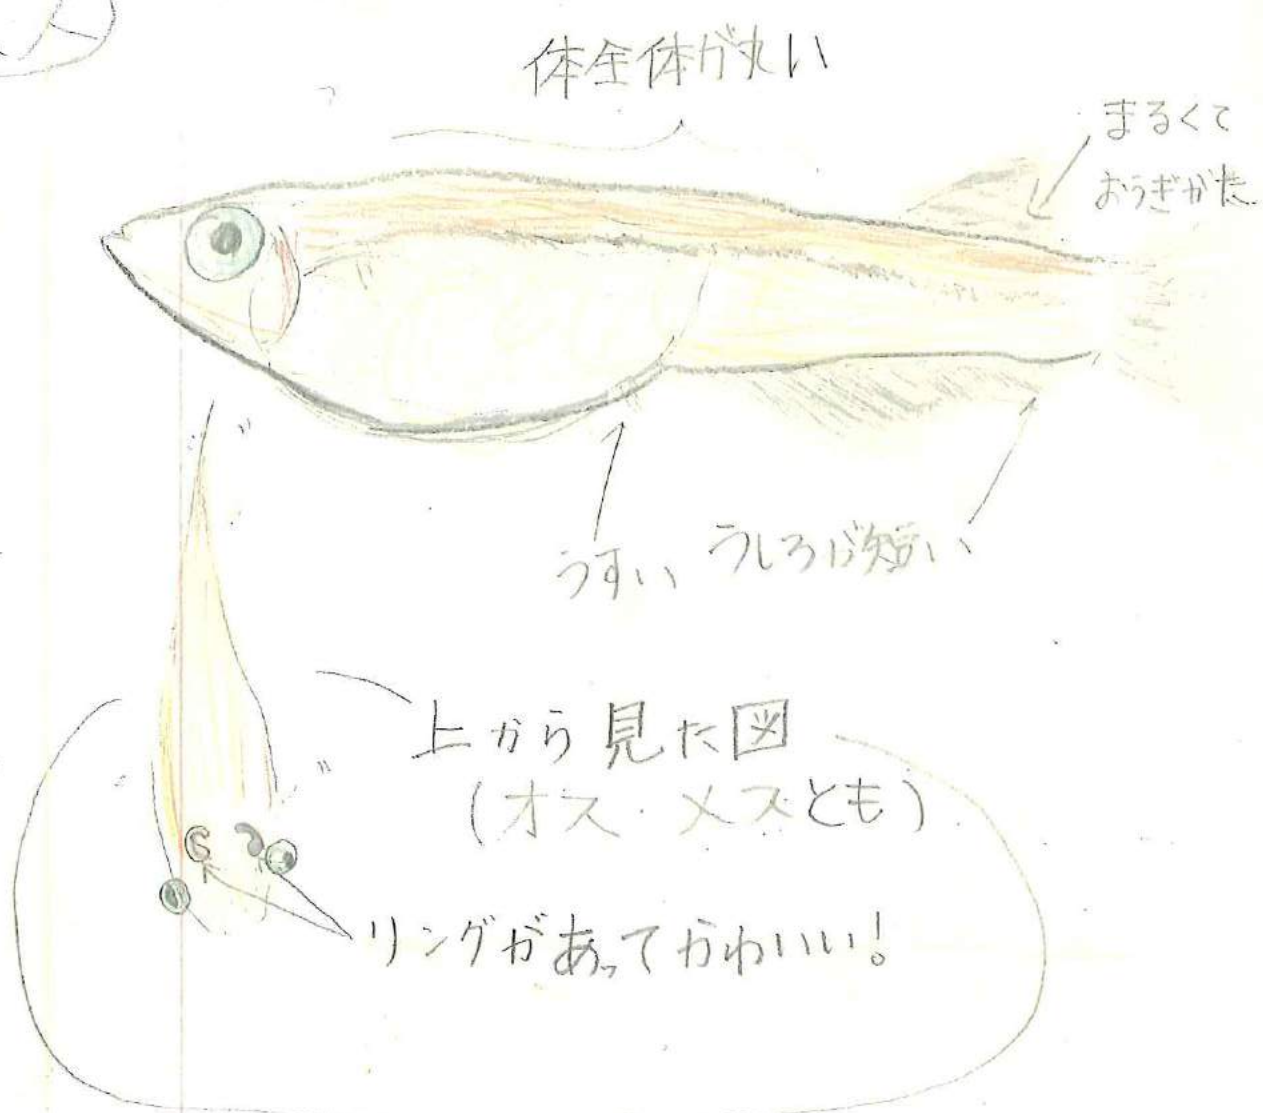 体全体が丸い
まるくて
おうぎがた
うすい
うしろが短い
上から見た図
(オス・メスとも)
リングがあってかわいい!